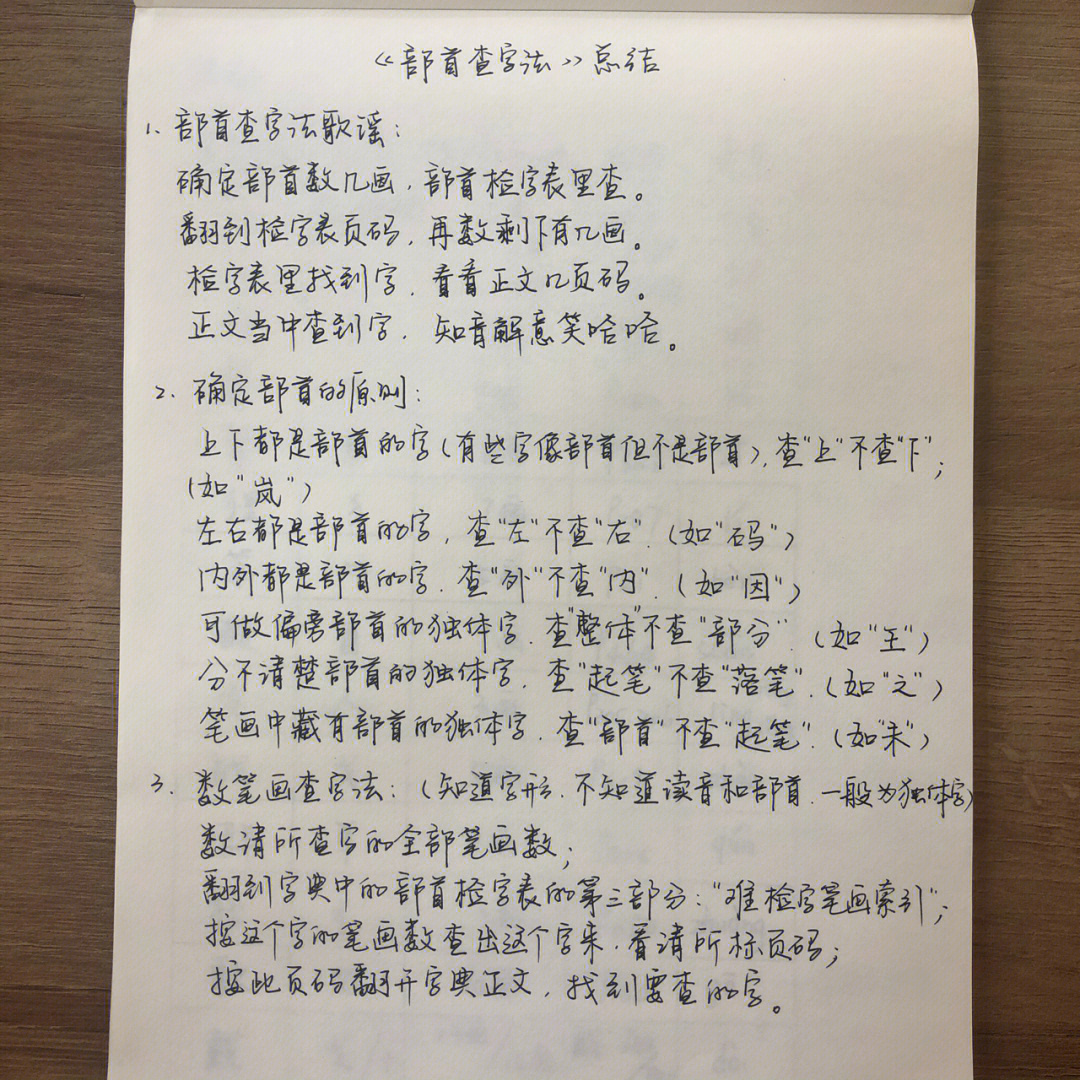 《部首查字法》总结
1、部首查字法歌谣：
确定部首数几画，部首检字表里查。
翻到检字表页码，再数剩下有几画。
检字表里找到字，看看正文几页码。
正文当中查到字，知音解意笑哈哈。
2、确定部首的原则：
上下都是部首的字(有些字像部首但不是部首)，查"上"不查"下"；
(如"岚")
左右都是部首的字，查"左"不查"右"．(如"码")
内外都是部首的字．查"外"不查"内"．(如"因")
可做偏旁部首的独体字．查"整体"不查"部分"．(如"王")
分不清楚部首的独体字．查"起笔"不查"落笔"．(如"之")
笔画中藏有部首的独体字．查"部首"不查"起笔"．(如"未")
3、数笔画查字法：(知道字形．不知道读音和部首．一般为独体字)
数清所查字的全部笔画数；
翻到字典中的部首检字表的第三部分："难检字笔画索引"；
按这个字的笔画数查出这个字来．看清所标页码；
按此页码翻开字典正文，找到要查的字。